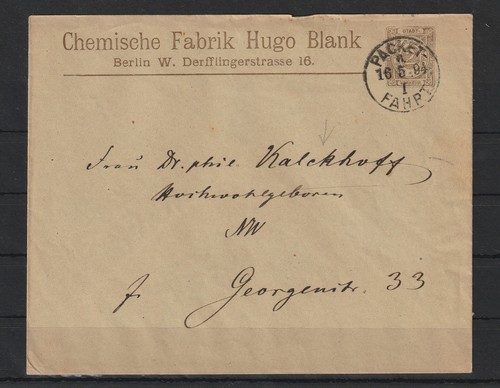 Chemische Fabrik Hugo Blank
Berlin W. Derfflingerstrasse 16.
PACKET-
n.
16 5 94
I
FAHRT
Frau Dr. phil. Kalckhoff
Hochwohlgeboren
NW
Georgenstr. 33